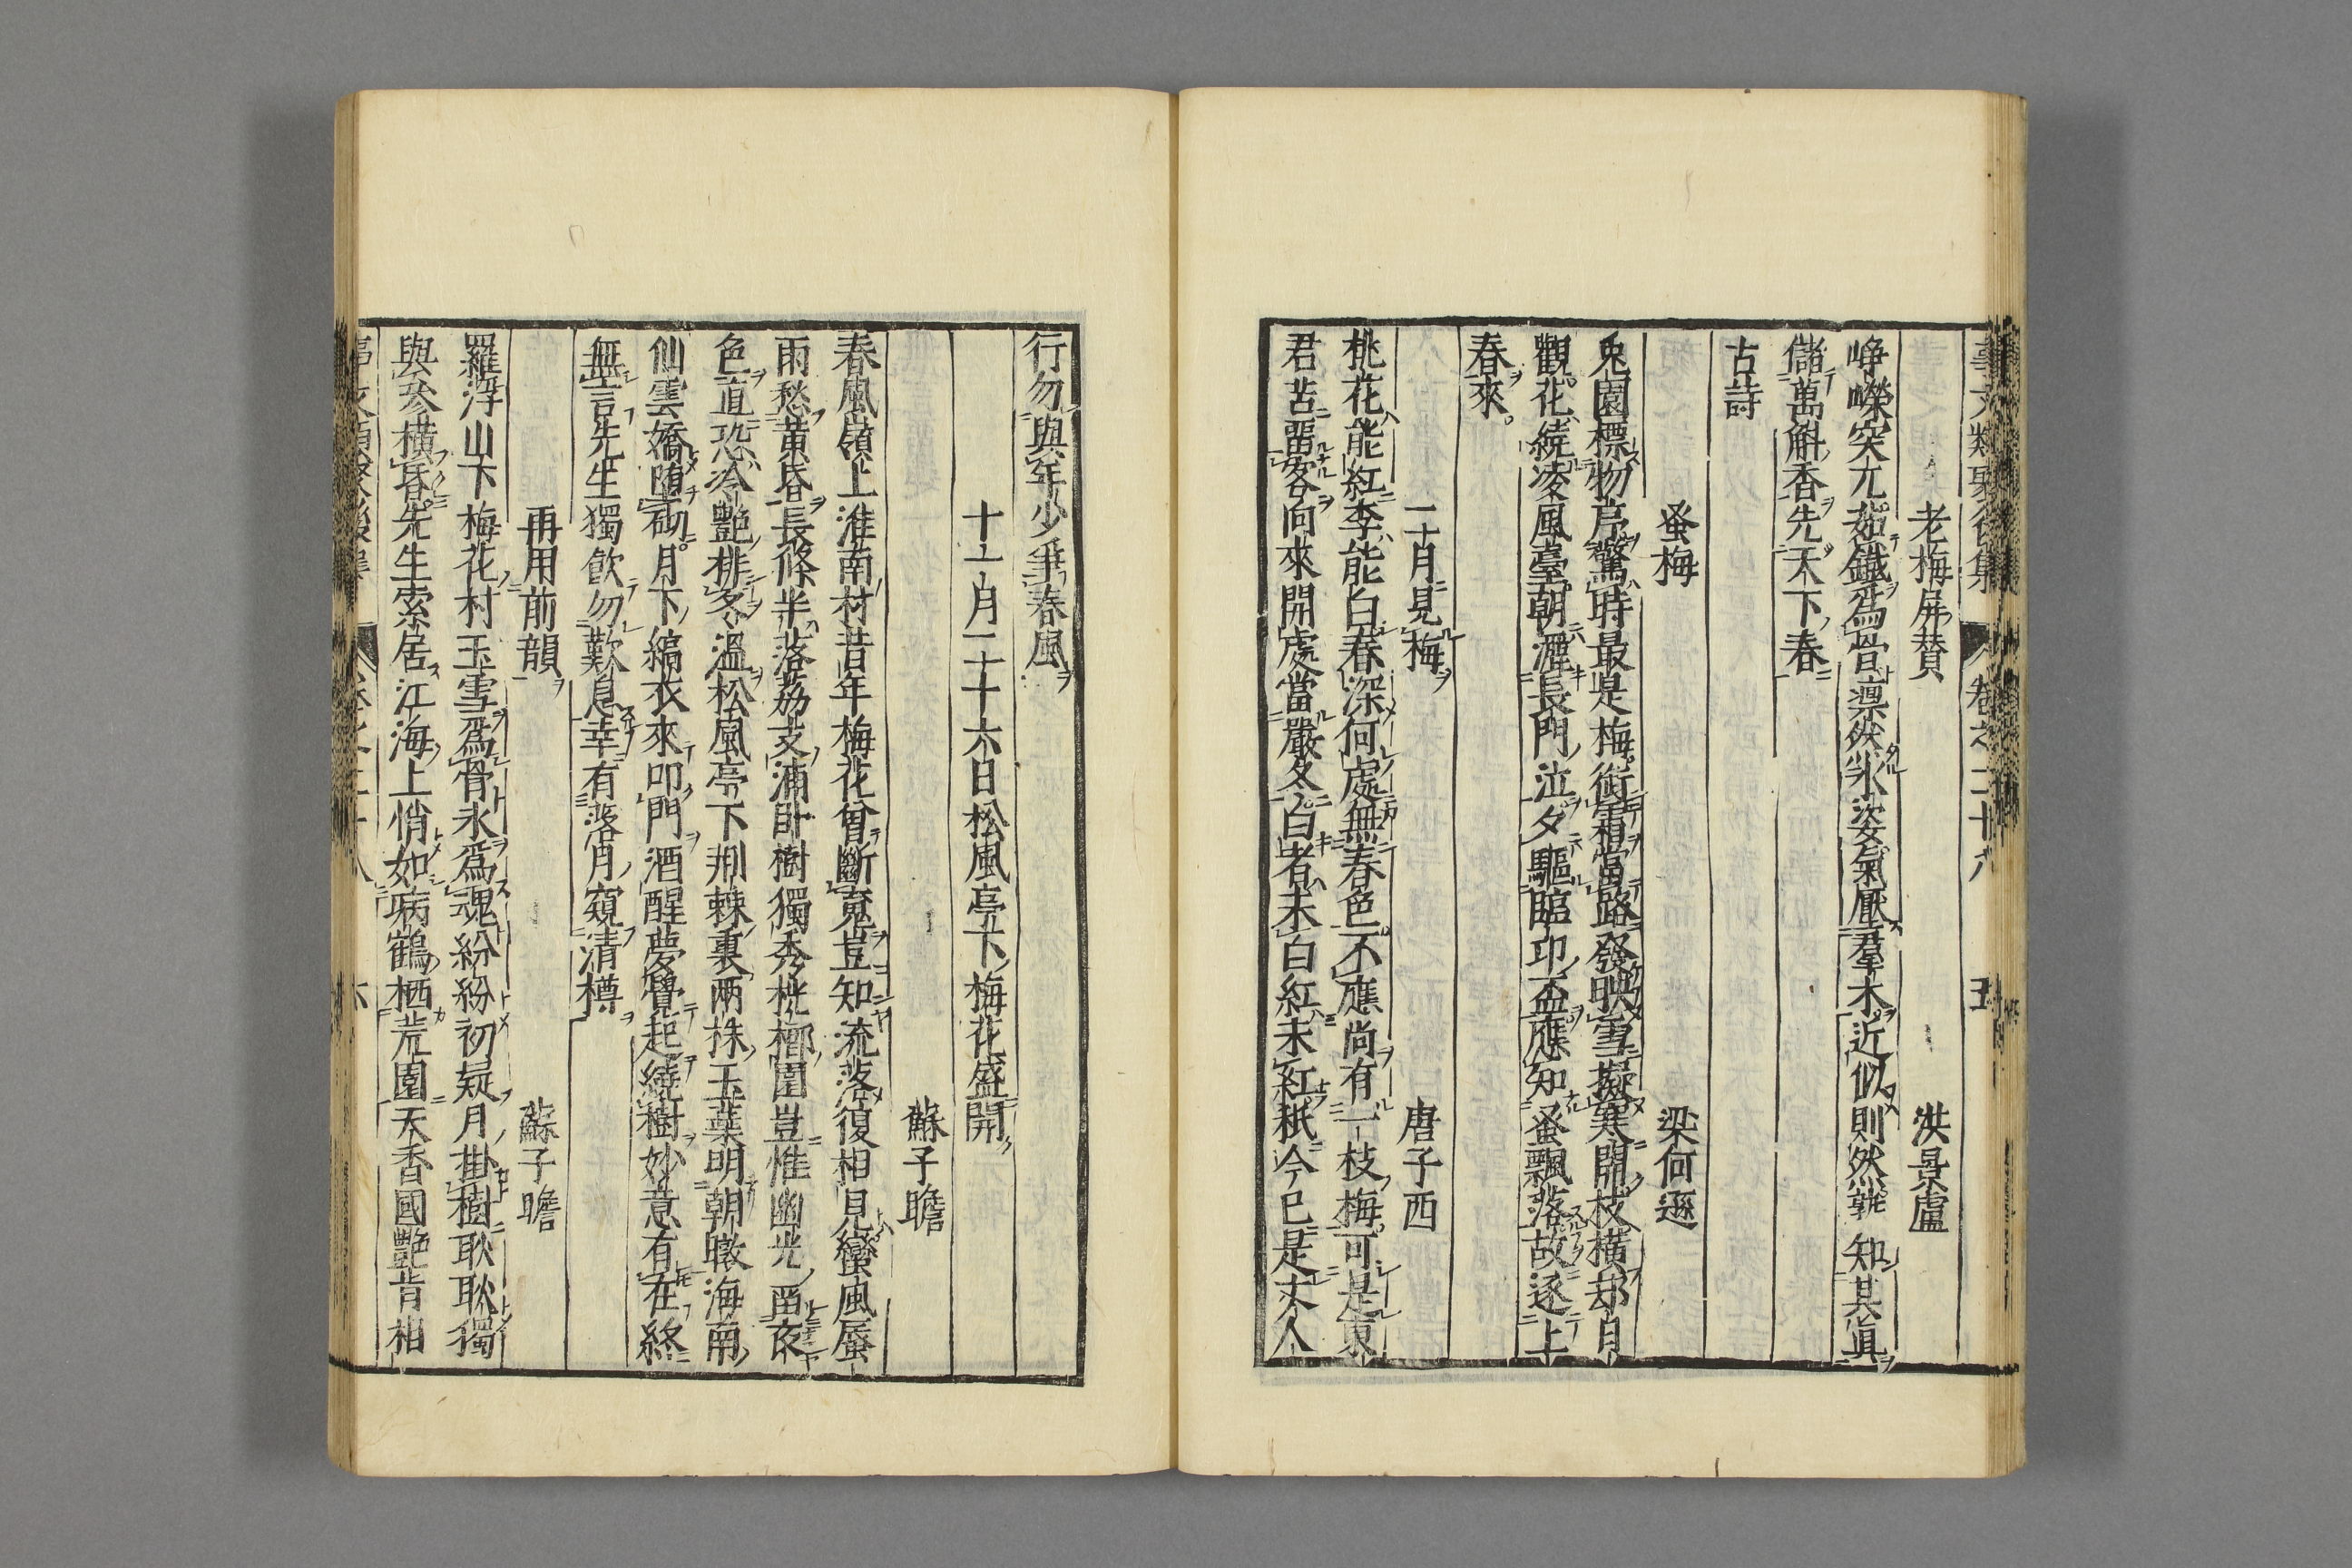 事文類聚後集 卷之二十八 五
老梅屏賛 洪景盧
崢嶸突兀茹鐵爲骨凛然氷姿氣壓羣木近似則然孰知其真
儲萬斛香先天下春
古詩
蚤梅 梁何遜
兎園標物序驚時最是梅銜霜當路發映雪擬寒開枝横却月
觀花繞凌風臺朝灑長門泣夕驅臨卭盃應知蚤飄落故逐上
春來
二十月見梅 唐子西
桃花能紅李能白春深何處無春色不應尚有一枝梅可是東
君苦畱客向來開處當嚴冬白者未白紅未紅秖今巳是丈人
行勿與年少爭春風
十一月二十六日松風亭下梅花盛開
蘇子瞻
春風嶺上淮南村昔年梅花曾斷䰟豈知流落復相見蠻風蜃
雨愁黄昏長條半落荔支浦卧樹獨秀桄榔園豈惟幽光畱夜
色直恐冷艶排冬溫松風亭下荆棘裏兩株玉蘂明朝暾海南
仙雲嬌墮砌月下縞衣來叩門酒醒夢覺起繞樹妙意有在終
無言先生獨飲勿歎息幸有落月窺清樽
再用前韻 蘇子瞻
羅浮山下梅花村玉雪爲骨氷爲魂紛紛初疑月掛樹耿耿獨
與參橫昏先生索居江海上悄如病鶴栖荒園天香國艶肯相